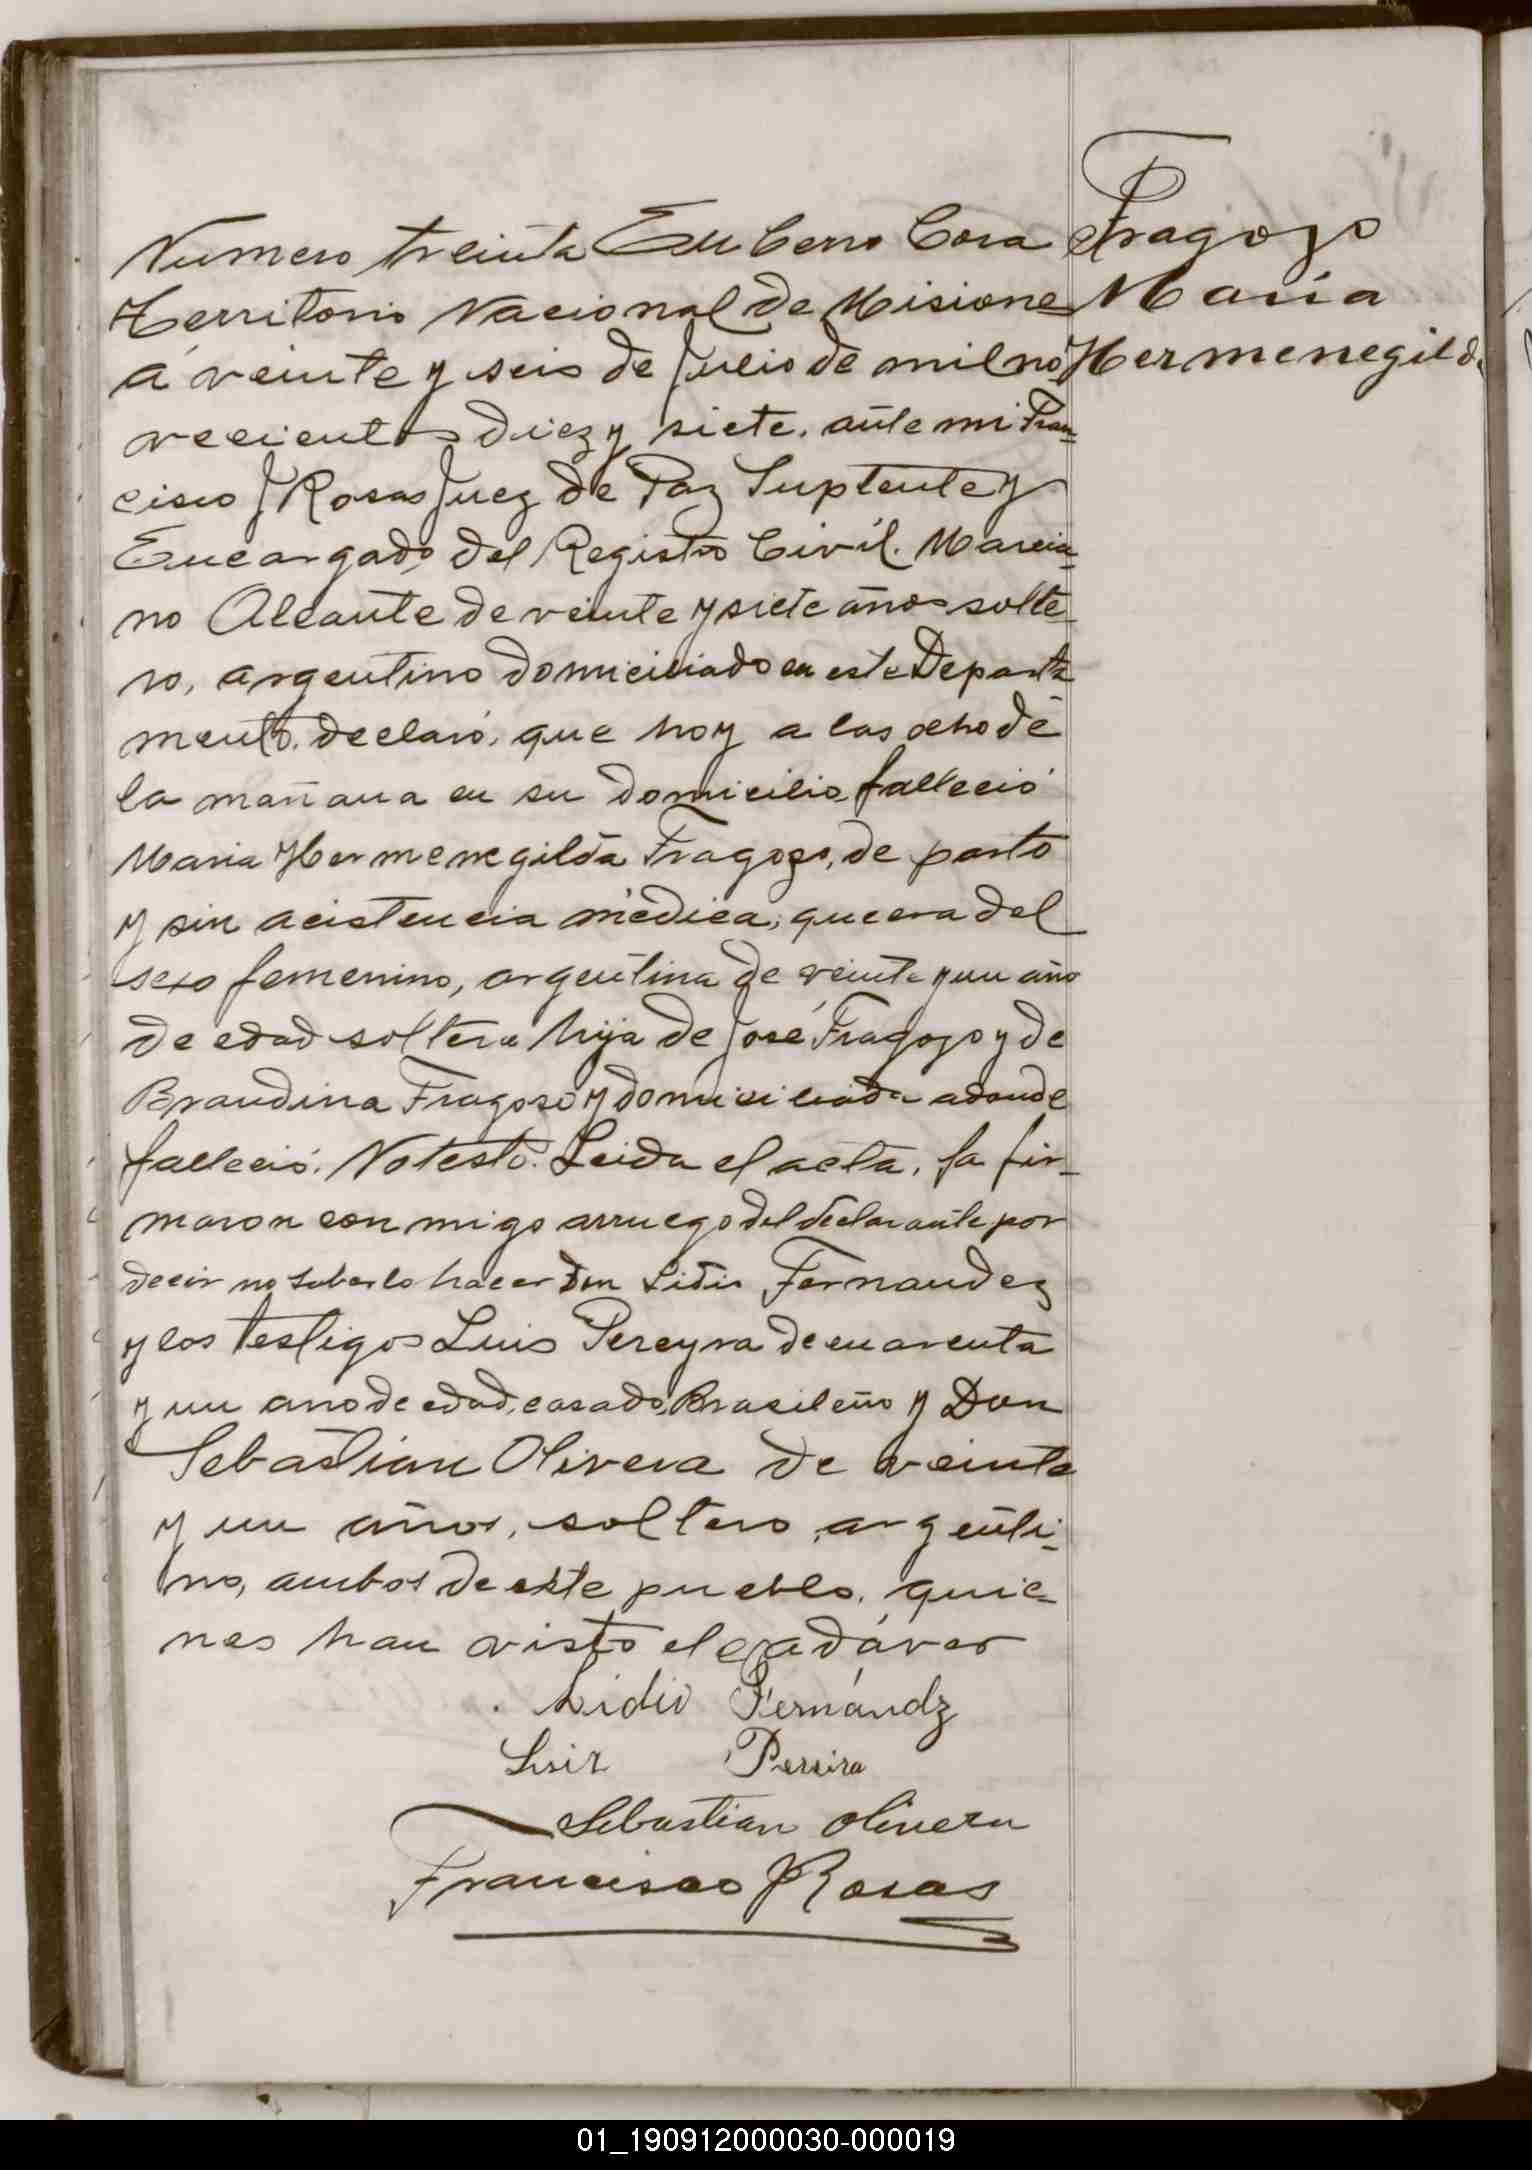 Numero treinta En Cerro Cora
Territorio Nacional de Misiones
á veinte y seis de Julio de mil no
vecientos diez y siete. ante mi Fran-
cisco J Rosas Juez de Paz Suptente y
Encargado del Registro Civil. Marcia-
no Alcante de veinte y siete años solte-
ro, argentino domiciliado en este Departa
mento. declaró, que hoy a las ocho de
la mañana en su domicilio falleció
Maria Hermenegilda Fragozo, de parto
y sin acistencia médica, que era del
sexo femenino, argentina de veinte y un año
de edad soltera hija de José Fragozo y de
Brandina Fragoso y domiciliada adonde
falleció. No testó. Leida el acta, la fir-
maron con migo arruego del declarante por
decir no saberlo hacer Don Lidio Fernandez
y los testigos Luis Pereyra de cuarenta
y un ano de edad, casado, Brasileño y Don
Sebastian Olivera de veinte
y un años, soltero, argenti-
no, ambos de este pueblo, quie-
nes han visto el cadáver
Lidio Fernándz
Luiz Pereira
Sebastian Olivera
Francisco J Rosas
Fragozo
Maria
Hermenegilda
01_190912000030-000019